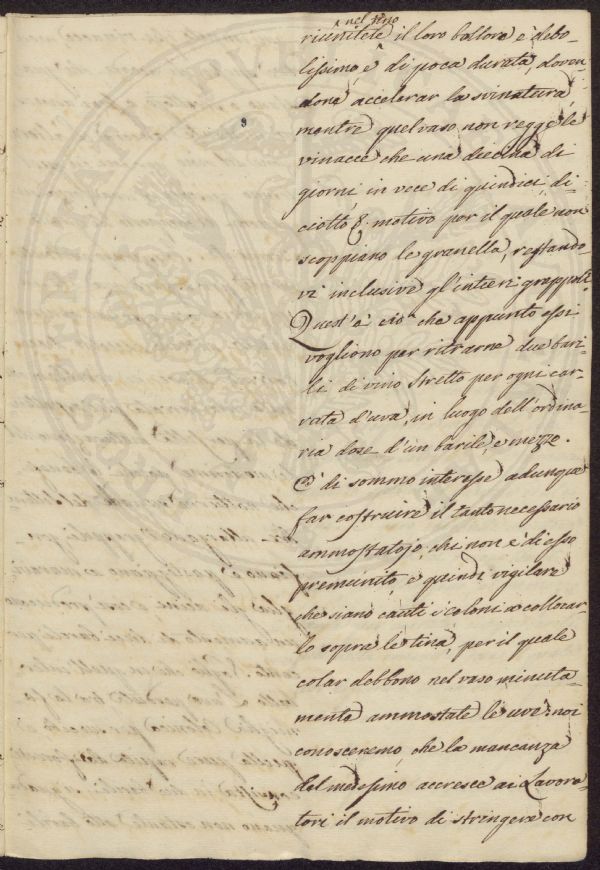 nel tino
riunitele il loro bollore è debo-
lissimo, e di poca durata, doven-
done accelerar la svinatura,
mentre quel vaso non regge le
vinacce che una diecina di
giorni in vece di quindici, di-
ciotto &. motivo per il quale non
scoppiano le granella, restando-
vi inclusive gl'interi grappoli.
Quest'è ciò che appunto essi
vogliono per ritrarne due bari-
li di vino stretto per ogni car-
rata d'uva, in luogo dell'ordina-
ria dose d'un barile, e mezzo.
È di sommo interesse adunque
far costruire il tanto necessario
ammostatojo, chi non è di esso
premunito, e quindi vigilare
che siano cauti i coloni a collocar-
lo sopra le tina, per il quale
colar debbono nel vaso minuta-
mente ammostate le uve: noi
conosceremo, che la mancanza
del medesimo accresce ai Lavora-
tori il motivo di stringere con